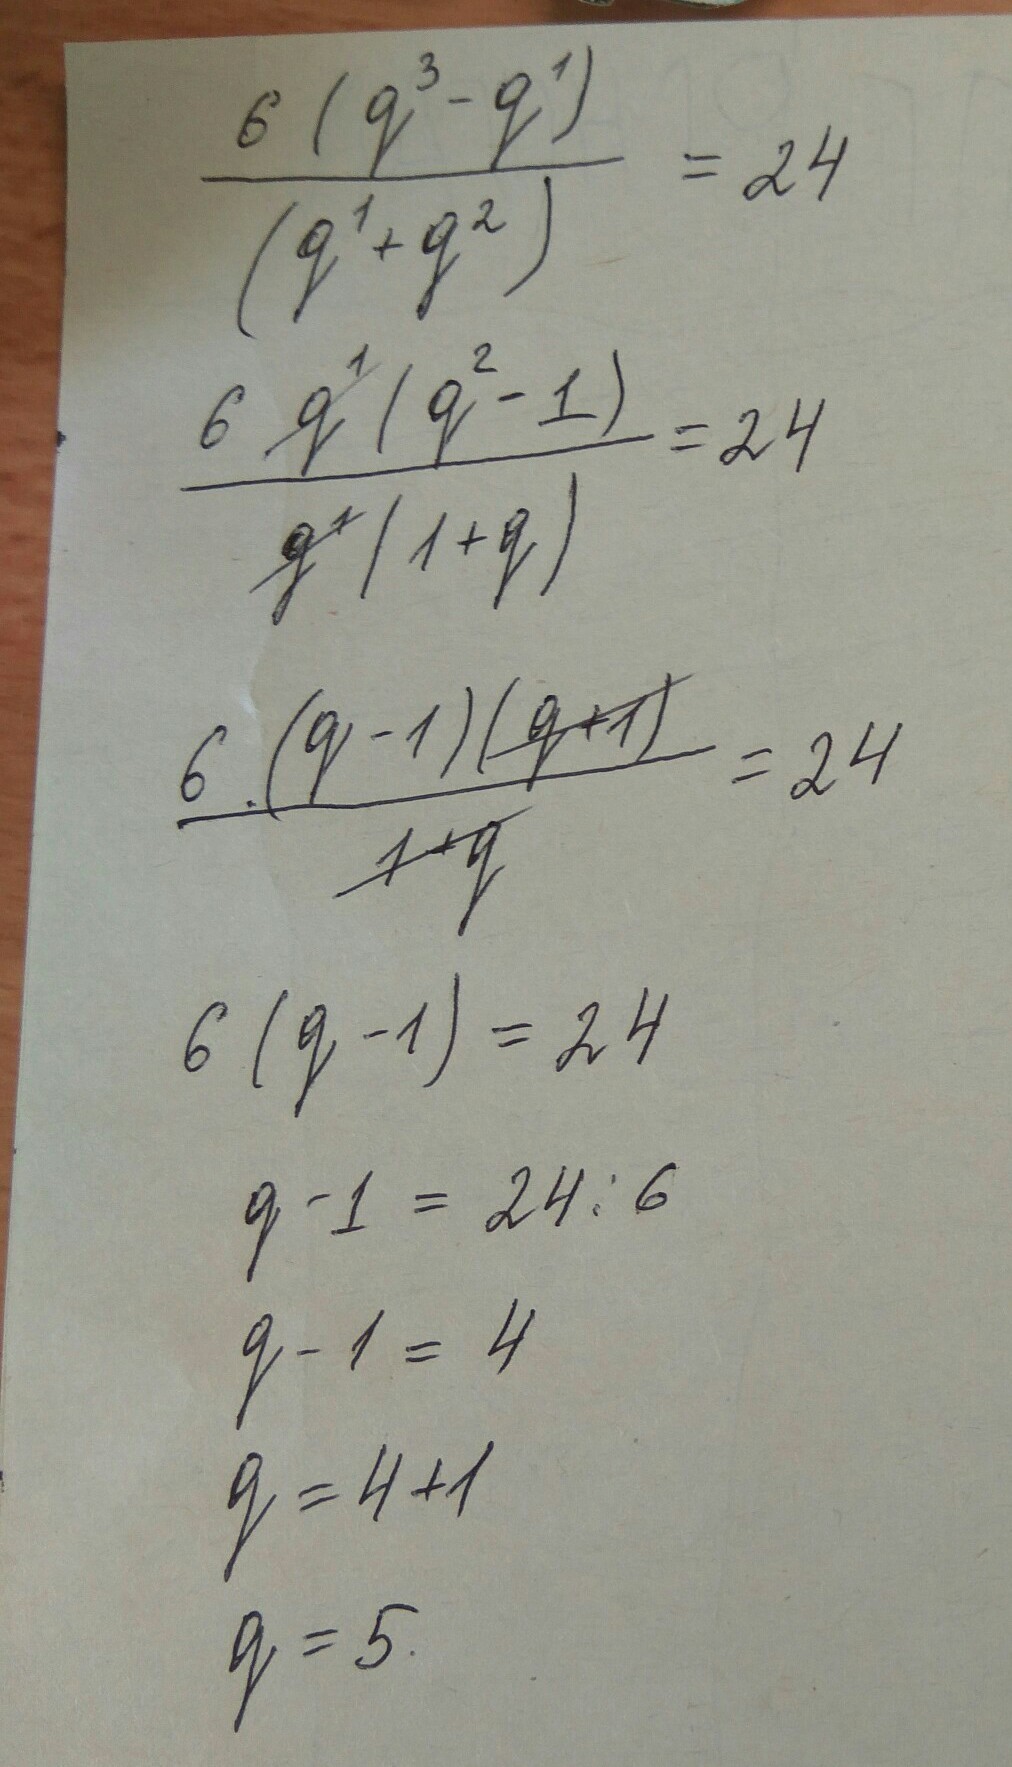 6 (q³ - q¹) / (q¹ + q²) = 24
6 q¹ (q² - 1) / q¹ (1 + q) = 24
6 · (q - 1) (q + 1) / 1 + q = 24
6 (q - 1) = 24
q - 1 = 24 : 6
q - 1 = 4
q = 4 + 1
q = 5.